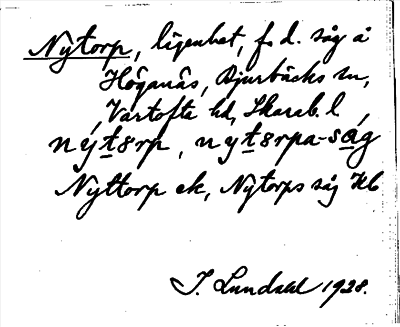 Nytorp, lägenhet, f. d. såg å
Höganäs, Djurbäcks sn,
Vartofta hd, Skarab. l,
nýt8rp, nyt8rpa-såg
Nyttorp ek, Nytorps såg Hb
J. Lundahl 1928.